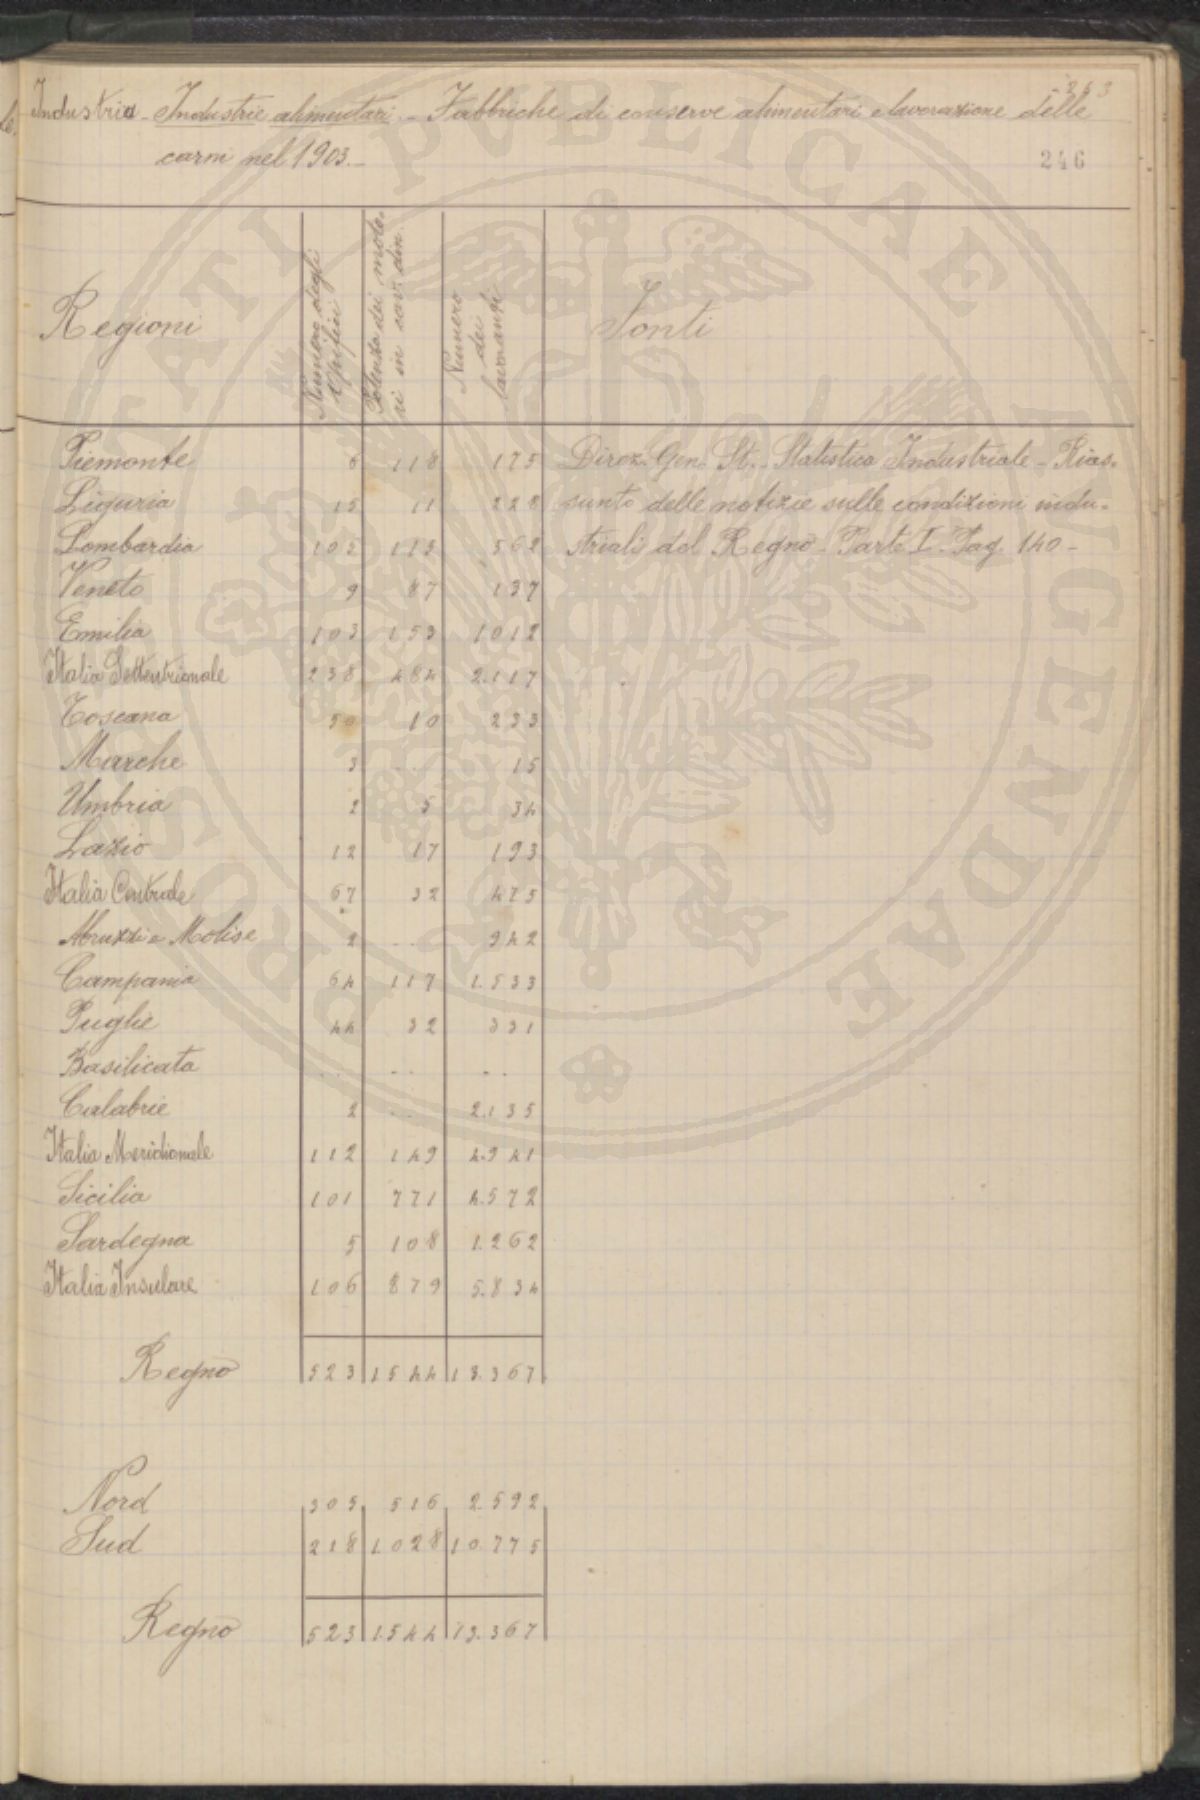 263
Industria - Industrie alimentari - Fabbriche di conserve alimentari e lavorazione delle
carni nel 1903.-
246
Regioni | Numero degli Opifici | Potenza dei moto-ri in cav. din. | Numero dei lavoranti | Fonti
Piemonte 6 118 175 Direz. Gen. St. - Statistica Industriale - Rias-
Liguria 15 11 228 sunto delle notizie sulle condizioni indu-
Lombardia 105 115 562 striali del Regno - Parte I. Pag. 140 -
Veneto 9 87 137
Emilia 103 153 1012
Italia Settentrionale 238 484 2.117
Toscana 50 10 233
Marche 3 .. 15
Umbria 2 5 34
Lazio 12 17 193
Italia Centrale 67 32 475
Abruzzi e Molise 2 .. 942
Campania 64 117 1.533
Puglie 44 32 331
Basilicata .. .. ..
Calabrie 2 .. 2.135
Italia Meridionale 112 149 4.941
Sicilia 101 771 4.572
Sardegna 5 108 1.262
Italia Insulare 106 879 5.834
Regno 523 1544 13.367
Nord 305 516 2.592
Sud 218 1.028 10.775
Regno 523 1.544 13.367
PROSPERITATI PUBLICAE AUGENDAE